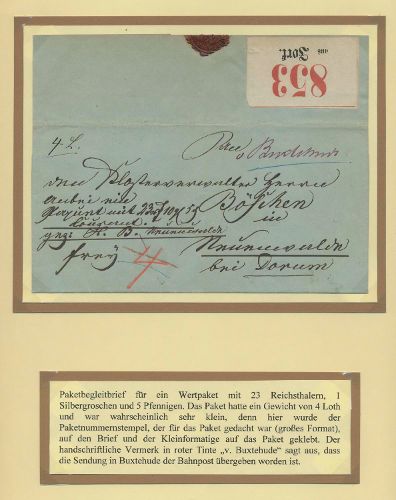 aus
Zorf.
853
4 L.
v Buxtehude
den Klosterverwalter Herrn
anbei ein Böschen
Paquet mit 23 rt 10 g 5 in
Courant.
gez: H. B. Neuenwalde Neuenwalde
frey 4 bei Dorum
Paketbegleitbrief für ein Wertpaket mit 23 Reichsthalern, 1
Silbergroschen und 5 Pfennigen. Das Paket hatte ein Gewicht von 4 Loth
und war wahrscheinlich sehr klein, denn hier wurde der
Paketnummernstempel, der für das Paket gedacht war (großes Format),
auf den Brief und der Kleinformatige auf das Paket geklebt. Der
handschriftliche Vermerk in roter Tinte „v. Buxtehude“ sagt aus, dass
die Sendung in Buxtehude der Bahnpost übergeben worden ist.